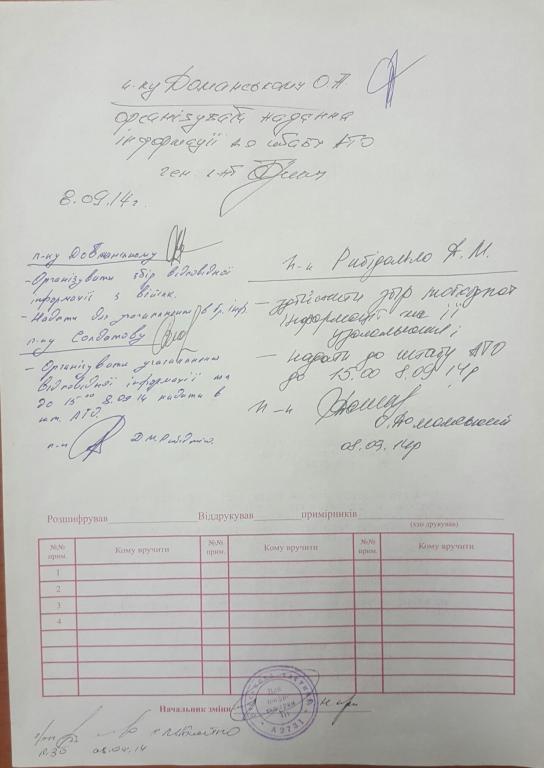 п-ку Доманському О.П.
організувати надання
інформації до штабу АТО
ген. л-т
8.09.14г.
п-ку Довганському
- Організувати збір відповідної
інформації з військ.
- Надати для узагальнення в гр. інф.
п-ку Солдатову
- Організувати узагальнення
відповідної інформації та
до 15 00 8.09.14 надати в
шт. АТО.
п-к
п-к А.М.
- здійснити збір
інформації та її
узагальнення;
- надати до штабу АТО
до 15.00 8.09.14р
п-к
О.Доманський
08.09.14р
Розшифрував Віддрукував примірників
(хто друкував)
№№ прим. Кому вручити №№ прим. Кому вручити №№ прим. Кому вручити
1
2
3
4
Начальник зміни
А2731
08.09.14